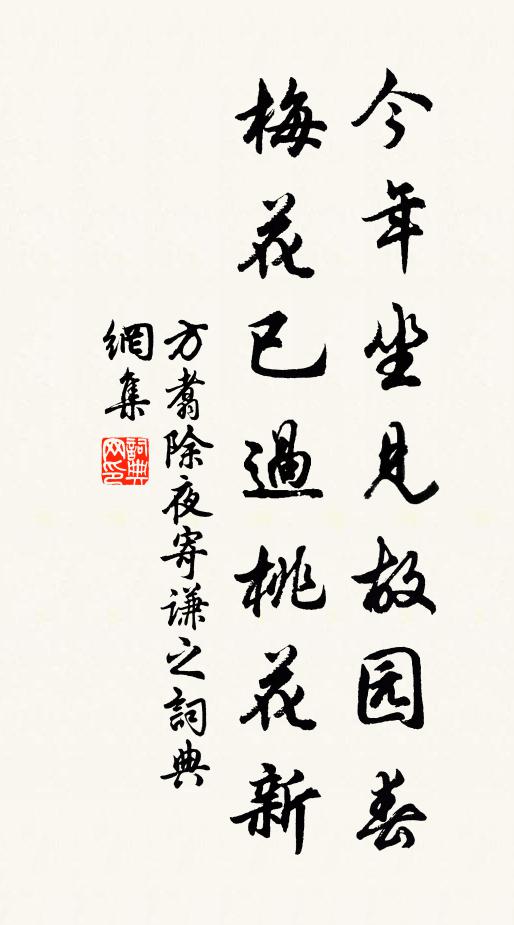 今年坐见故园春
梅花已過桃花新
方翥除夜寄谦之詞典
網集
詞典
网印